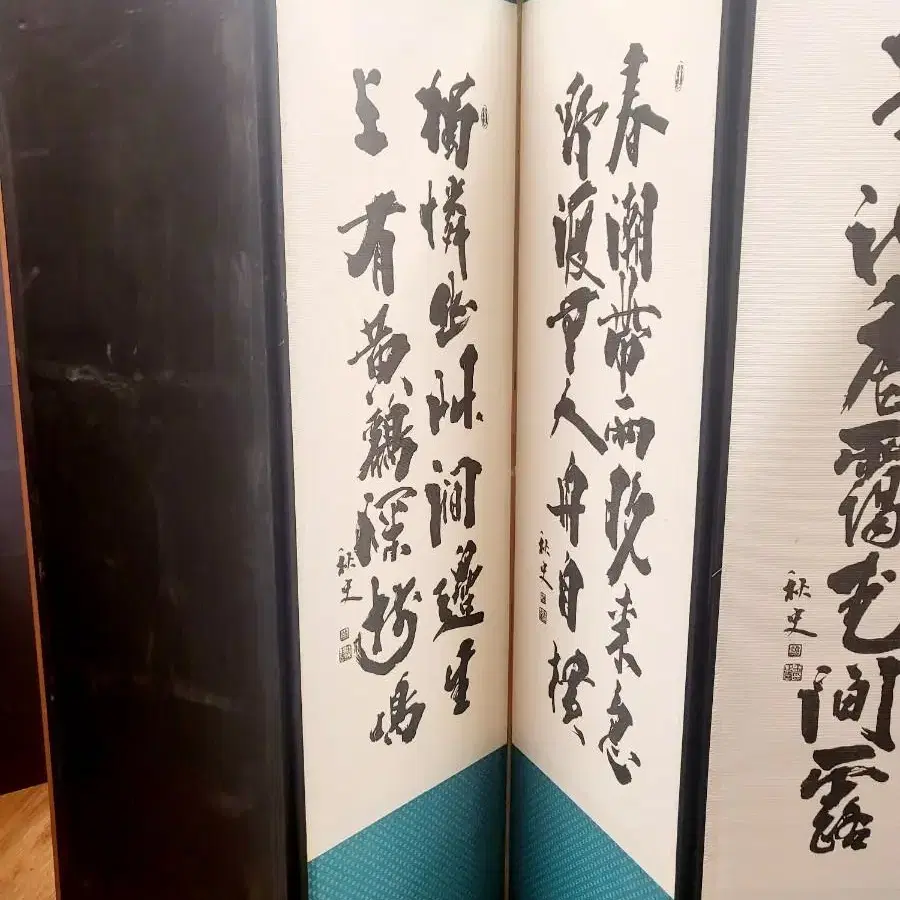 間露
秋史
春潮帶雨晚來急
野渡无人舟自橫
秋史
獨憐幽艸澗邊生
上有黃鸝深樹鳴
秋史